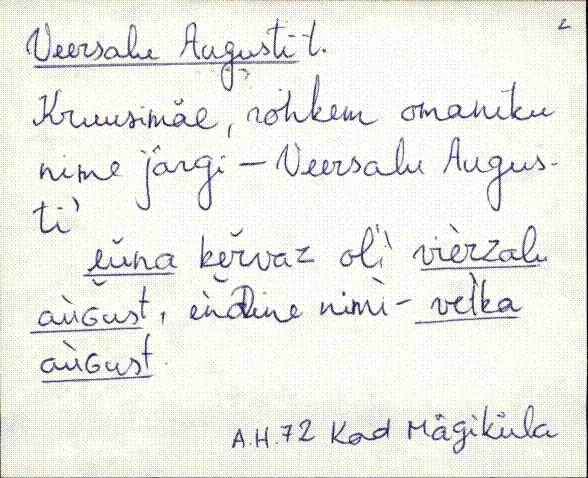 Veersalu Augusti t.
Kruusimäe, rohkem omaniku
nime järgi – Veersalu Augus-
ti'
eùna kèrvaz ol'ì vièrzalu
aùGust, èǹDine nimì – vetka
aùGust.
A.H.72 Kad Mägiküla